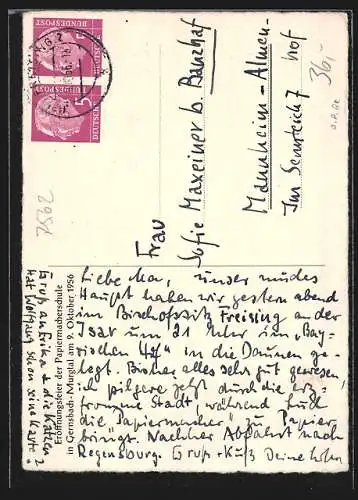 DEUTSCHE BUNDESPOST
5
DEUTSCHE BUNDESPOST
5
36,-
7562
Frau
Sofie Maxeiner b. Bauhof
Mannheim-Almen-
hof
Eröffnungsfeier der Papiermacherschule
in Gernsbach-Murgtal am 9. Oktober 1956
Liebe Ma, unser müdes
Haupt haben wir gestern abend
im Bischofssitz Freising an der
Isar um 21 Uhr im "Bay-
rischen Hof" in die Daunen ge-
legt. Bisher alles sehr gut gewesen,
ich pilgere jetzt durch die
fromme Stadt, während
die "Papiermacher" zu Papier
bringt. Nachher Abfahrt nach
Regensburg. Gruß + Kuß Deine
Gruß an Erika & die Katzen!
Hat Wolfgang schon seine Karte?